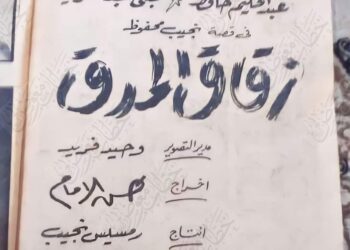 عبد الحليم حافظ
فى قصة نجيب محفوظ
زقاق المدق
مدير التصوير وحيد فريد
اخراج حسن الامام
انتاج رمسيس نجيب